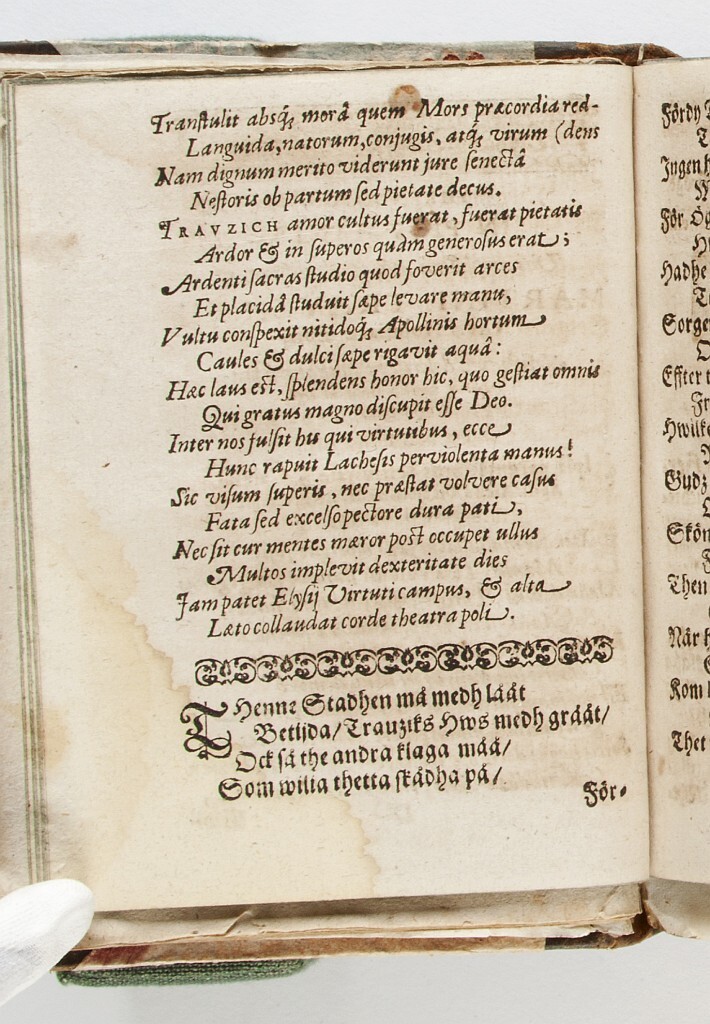 Tranſtulit absq́; morâ quem Mors præcordia red-
Languida, natorum, conjugis, atq́; virum (dens
Nam dignum merito viderunt jure ſenectâ
Neſtoris ob partum ſed pietate decus.
TRAVZICH amor cultus fuerat, fuerat pietatis
Ardor & in ſuperos quàm generoſus erat;
Ardenti ſacras ſtudio quod foverit arces
Et placidâ ſtuduit ſæpe levare manu,
Vultu conſpexit nitidoq́; Apollinis hortum
Caules & dulci ſæpe rigavit aquâ:
Hæc laus eſt, ſplendens honor hic, quo geſtiat omnis
Qui gratus magno diſcupit eſſe Deo.
Inter nos fulſit his qui virtutibus, ecce
Hunc rapuit Lacheſis perviolenta manus!
Sic viſum ſuperis, nec præſtat volvere caſus
Fata ſed excelſo pectore dura pati,
Nec ſit cur mentes mæror poſt occupet ullus
Multos implevit dexteritate dies
Jam patet Elyſij Virtuti campus, & alta
Læto collaudat corde theatra poli.
THenne Stadhen må medh lååt
Betijda/ Trauziks Hws medh grååt/
Ock ſå the andra klaga måå/
Som wilia thetta ſkådha på/
För-
Fördy
Ingen
För
Hadhe
Sorge
Effter
Hwilke
Gudz
Skön
Then
När
Kom
Thet